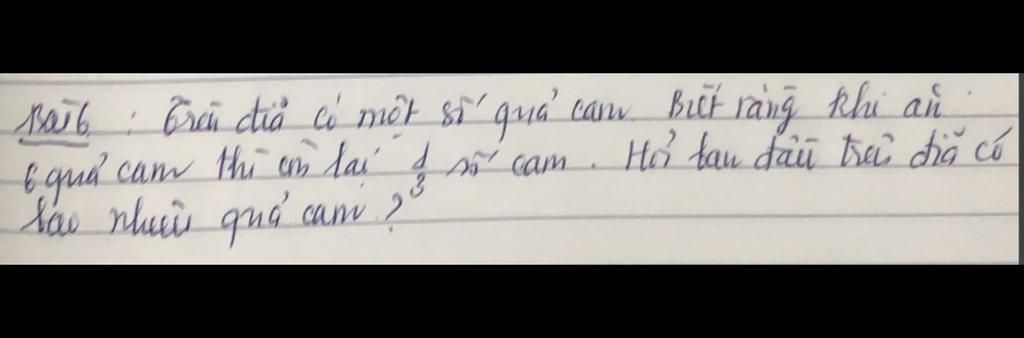 Bài 6 : Trên đĩa có một số quả cam. Biết rằng khi ăn
6 quả cam thì còn lại 1/3 số cam. Hỏi ban đầu trên đĩa có
bao nhiêu quả cam ?